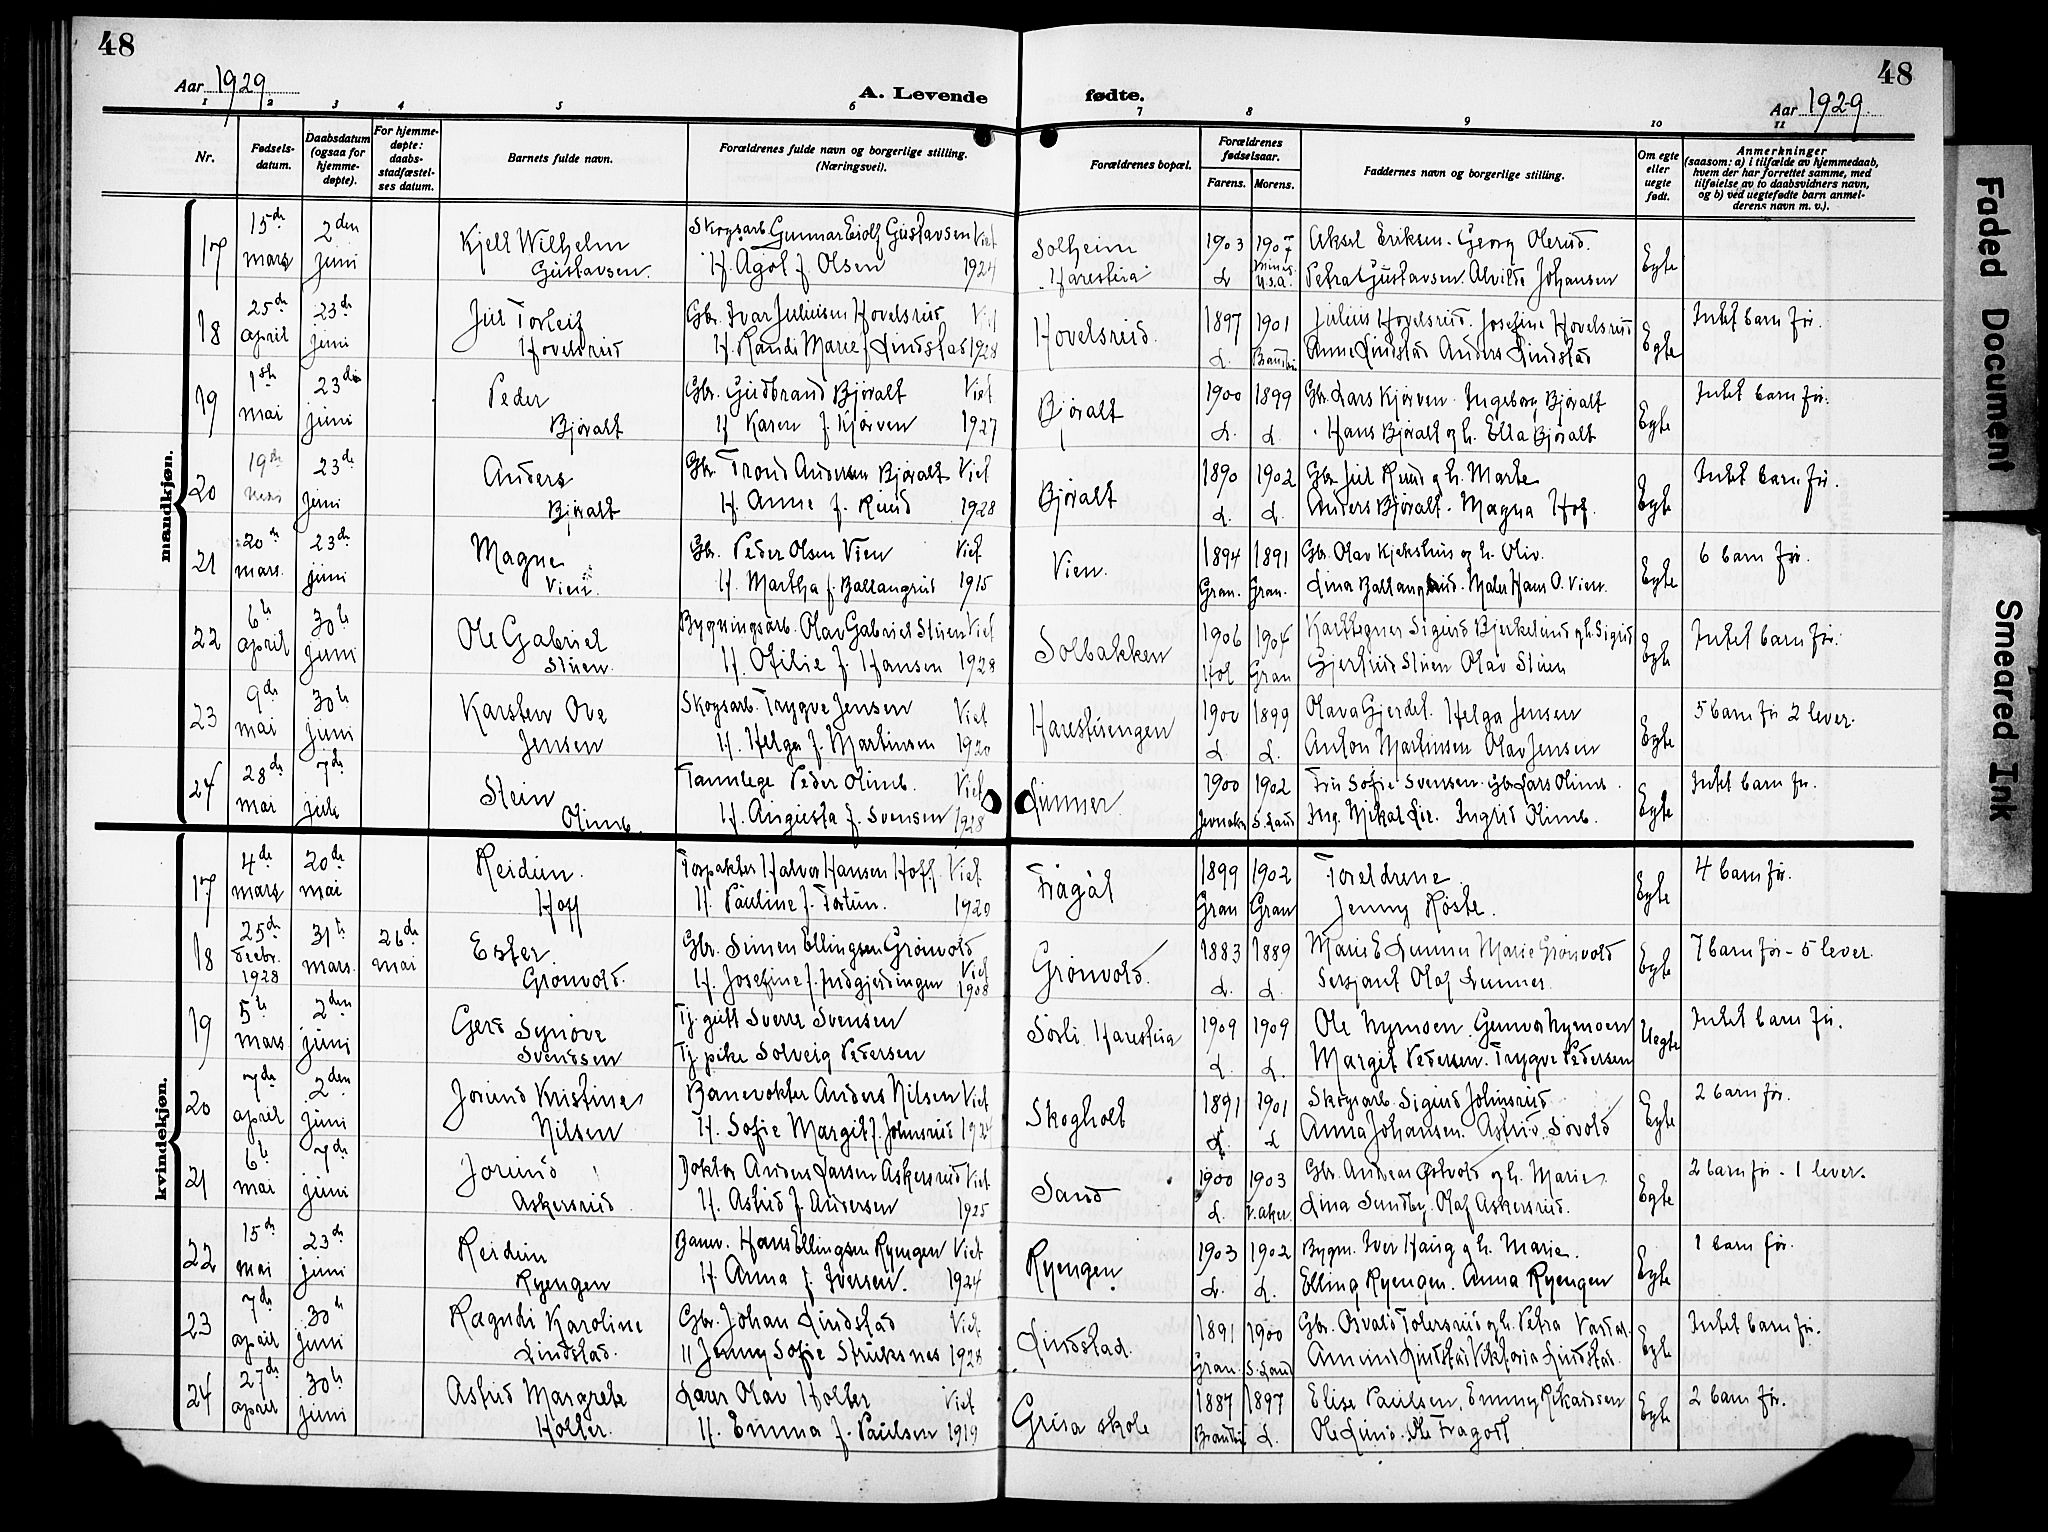 48
48
Aar 1929
A. Levende fødte.
Aar 1929.
1 2 3 4 5 6 7 8 9 10 11
Nr.
Fødsels-
datum.
Daabsdatum
(ogsaa for
hjemme-
døpte).
For hjemme-
døpte:
daabs-
stadfæstel-
ses datum.
Barnets fulde navn.
Forældrenes fulde navn og borgerlige stilling.
(Næringsvei).
Forældrenes bopæl.
Forældrenes
fødselsaar.
Farens. Morens.
Faddernes navn og borgerlige stilling.
Om egte
eller
uegte
født.
Anmerkninger
(saasom: a) i tilfælde av hjemmedaab,
hvem der har forrettet samme, med
tilføielse av to daabsvidners navn,
og b) ved uegtefødte barn anmel-
derens navn m. v.).
mandkjøn.
17 15de mars 2den juni Kjell Wilhelm Gustavsen. Skogsarb. Gunnar Eiolf Gustavsen Viet
H. Agot f. Olsen 1924
Solheim Harestua 1903 L. 1907 Mines. U.S.A. Aksel Eriksen. Georg Olerud.
Petra Gustavsen. Alvilde Johansen Egte
18 25de april 23de juni Jul Torleif Hovelsrud Gbr. Ivar Juliusen Hovelsrud Viet
H. Randi Marie f. Lindstad 1928
Hovelsrud. 1897 L. 1901 Brandbu Julius Hovelsrud. Josefine Hovelsrud
Anne Lindstad Anders Lindstad Egte Intet barn før.
19 1ste mai 23de juni Peder Bjøralt Gbr. Gudbrand Bjøralt Viet
H. Karen f. Kjørven 1927
Bjøralt 1900 L. 1899 L. Gbr. Lars Kjørven. Ingeborg Bjøralt
Hans Bjøralt og h. Ella Bjøralt Egte Intet barn før.
20 19de mai 23de juni Anders Bjøralt Gbr. Trond Andersen Bjøralt Viet
H. Anne f. Ruud 1928
Bjøralt 1890 L. 1902 L. Gbr. Jul Ruud og h. Marte
Anders Bjøralt. Magna Hof. Egte Intet barn før.
21 20de mars. 23de juni Magne Vien. Gbr. Peder Olsen Vien Viet
H. Martha f. Ballangrud 1915
Vien. 1894 Gran. 1891 Gran. Gbr. Olav Kjekshus og h. Oliv.
Lina Ballangrud. Maler Hans O. Vien. Egte 6 barn før.
22 6te april 30te juni Ole Gabriel Stuen. Bygningsarb. Olav Gabriel Stuen Viet
H. Ofilie f. Hansen 1928
Solbakken 1906 Hol 1904 Gran Karttegner Sigurd Bjerkelund og h. Sigrid
Gjertrud Stuen Olav Stuen Egte Intet barn før.
23 9de mai 30te juni Karsten Ove Jensen Skogsarb. Trygve Jensen Viet
H. Helga f. Martinsen 1920
Harestuengen 1900 L 1899 L. Olava Gjerdet. Helga Jensen
Anton Martinsen Olav Jensen Egte 5 barn før 2 lever.
24 28de mai 7de juli Stein Olimb. Tannlege Peder Olimb. Viet
H. Augusta f. Svensen 1928
Lunner. 1900 Jevnaker 1902 S. Land Fru Sofie Svensen. Gbr. Lars Olimb.
Ing. Mikal Lie. Ingrid Olimb. Egte Intet barn før.
kvindekjøn.
17 4de mars 20de mai Reidun. Hoff Forpakter Halvor Hansen Hoff. Viet
H. Pauline f. Fortun. 1920
Frågåt 1899 Gran 1902 Gran Foreldrene
Jenny Røste. Egte 4 barn før.
18 25de decbr. 1928 31te mars. 26de mai Ester. Grønvold. Gbr. Simen Ellingsen Grønvold
H. Josefine f. Indgjerdingen Viet 1908
Grønvold. 1883 L. 1889 L. Marie E Lunner Marie Grønvold
Sersjant Olaf Lunner. Egte 7 barn før - 5 lever.
19 5te mars 2den juni Gerd Synøve Svendsen Tj. gutt Sverre Svensen
Tj. pike Solveig Pedersen
Sørli Harestua 1909 L. 1909 L. Ole Nymoen. Gunvor Nymoen
Margit Pedersen. Trygve Pedersen Uegte Intet barn før.
20 7de april 2den juni Jorund Kristine Nilsen Banevokter Anders Nilsen Viet
H. Sofie Margit f. Johnsrud 1924
Skogholt 1891 L. 1901 L Skogsarb. Sigurd Johnsrud.
Anna Johansen. Astrid Søvold Egte 2 barn før.
21 6te mai 7de juni Jorund Askersrud Doktor Anders Larsen Askersrud Viet
H. Astrid f. Andersen 1925
Sand 1900 L. 1903 V. Aker. Gbr. Andreas Østvold og h. Marie
Lina Sundby. Olaf Askersrud. Egte 2 barn før - 1 lever.
22 15de mai 23de juni Reidun Ryengen Banev. Hans Ellingsen Ryengen Viet
H. Anna f. Iversen. 1924
Ryengen. 1903 L. 1902 L. Bygm. Iver Haug og h. Marie.
Elling Ryengen. Anna Ryengen Egte 1 barn før.
23 7de april 30te juni Ragndi Karoline Lindstad. Gbr. Johan Lindstad Viet
H Jenny Sofie Struksnes 1928
Lindstad. 1891 Gran. 1900 S. Land Gbr. Osvald Tolersrud og h. Petra
Amund Lindstad Viktoria Lindstad. Egte Intet barn før.
24 27de april 30te juni Astrid Margrete Holter. Lærer Olav Holter Viet
H. Emma f. Paulsen 1919
Grua skole 1887 Brandbu 1897 L. Elise Paulsen. Emmy Rikardsen
Ole Lund. Ole Fragott Egte 2 barn før.
Faded Document
Smeared Ink